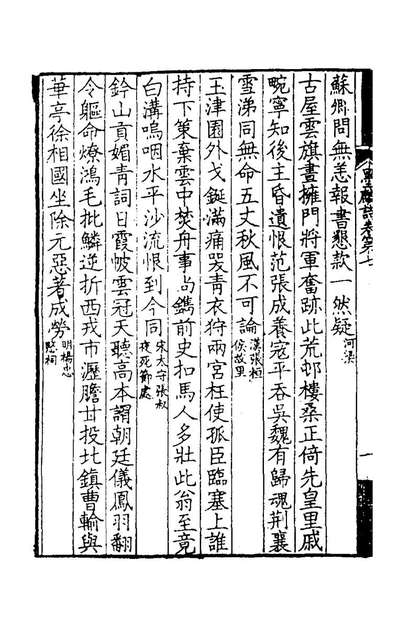 蘇卿問無恙報書懇款一然疑河梁
古屋雲旗晝擁門將軍奮跡此荒邨樓桑正倚先皇里戚
畹寧知後主昏遺恨范張成養寇平吞吳魏有歸魂荆襄
雪涕同無命五丈秋風不可論漢張桓侯故里
玉津園外戈鋋滿痛哭青衣狩兩宮枉使孤臣臨塞上誰
持下策棄雲中焚舟事尚鐫前史扣馬人多壯此翁至竟
白溝嗚咽水平沙流恨到今同宋太守張叔夜死節處
鈐山貢媚青詞日霞帔雲冠天聽高本謂朝廷儀鳳羽翻
令軀命燎鴻毛批鱗逆折西戎市瀝膽甘投北鎮曹輸與
華亭徐相國坐除元惡著成勞明楊忠愍祠
卷第七
一